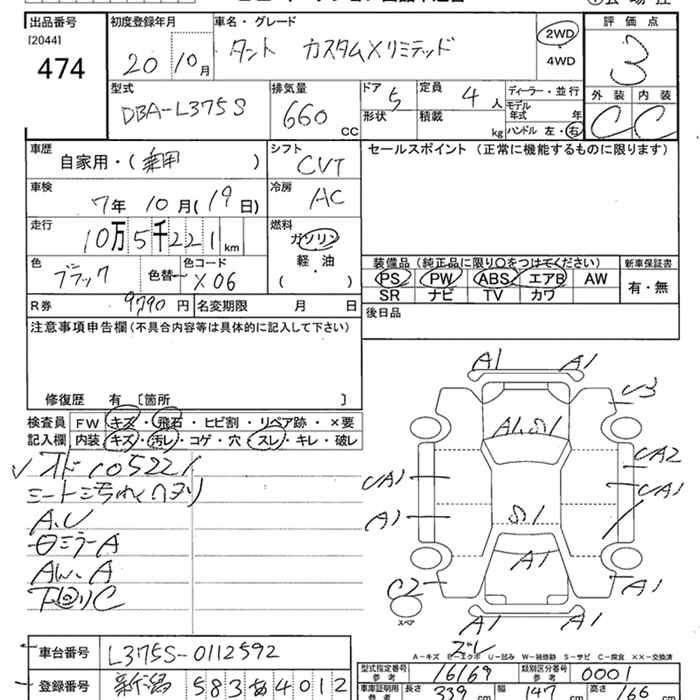 出品番号
[2044]
474
初度登録年月
20 10月
車名・グレード
タント カスタムXリミテッド
2WD
4WD
評価点
3
外装 内装
C C
型式
DBA-L375S
排気量
660 CC
ドア 5
形状
定員 4 人
積載 kg
ディーラー・並行
モデル年式 年
ハンドル 左・右
車歴
自家用・( )
シフト
CVT
セールスポイント (正常に機能するものに限ります)
車検
7年 10月(19日)
冷房
AC
走行
10万5千221km
燃料
ガソリン
軽・油
( )
色
ブラック
色替
色コード
X06
装備品(純正品に限り○をつけてください)
PS PW ABS エアB AW
SR ナビ TV カワ
新車保証書
有・無
R券 9790円
名変期限 月 日
後日品
注意事項申告欄(不具合内容等は具体的に記入して下さい)
修復歴 有 [箇所 ]
検査員記入欄
FW キズ・飛石・ヒビ割・リペア跡・×要
内装 キズ・汚レ・コゲ・穴・スレ・キレ・破レ
オド105221
A.U
ミラーA
AW.A
A1 A1
U3
A1
UA2
UA1
UA1
A1
A1
C2
A1
スペア
A1 A1
A-キズ E-エクボ U-凹み W-補修跡 S-サビ C-腐食 ××-交換済
車台番号
L375S-0112592
登録番号
新潟 583 あ 4012
型式指定番号 参考
16169
類別区分番号
0001
車庫証明用 参考
長さ 339 cm
幅 147 cm
高さ 166 cm